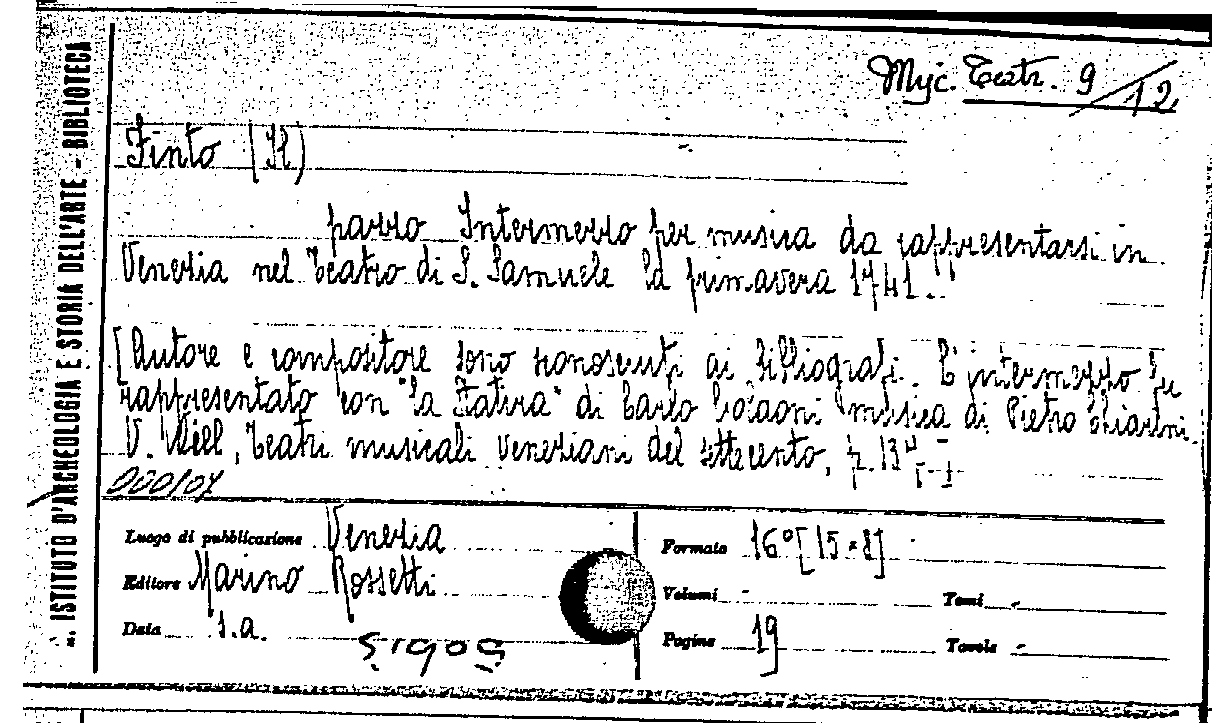 . ISTITUTO D'ARCHEOLOGIA E STORIA DELL'ARTE - BIBLIOTECA
Teatr. 9/12
Finto (Il)
pazzo Intermezzo per musica da rappresentarsi in
Venezia nel Teatro di S. Samuele la primavera 1741.
[Autore e compositore sono sconosciuti ai bibliografi. L'intermezzo fu
rappresentato con "la Statira" di Carlo musica di Pietro Chiarini
V. Wiel, Teatri musicali veneziani del settecento, p. 134
Luogo di pubblicazione Venezia
Editore Marino Rossetti
Data s.a.
Formato 16° [15×8]
Volumi -
Tomi -
Pagine 19
Tavole -